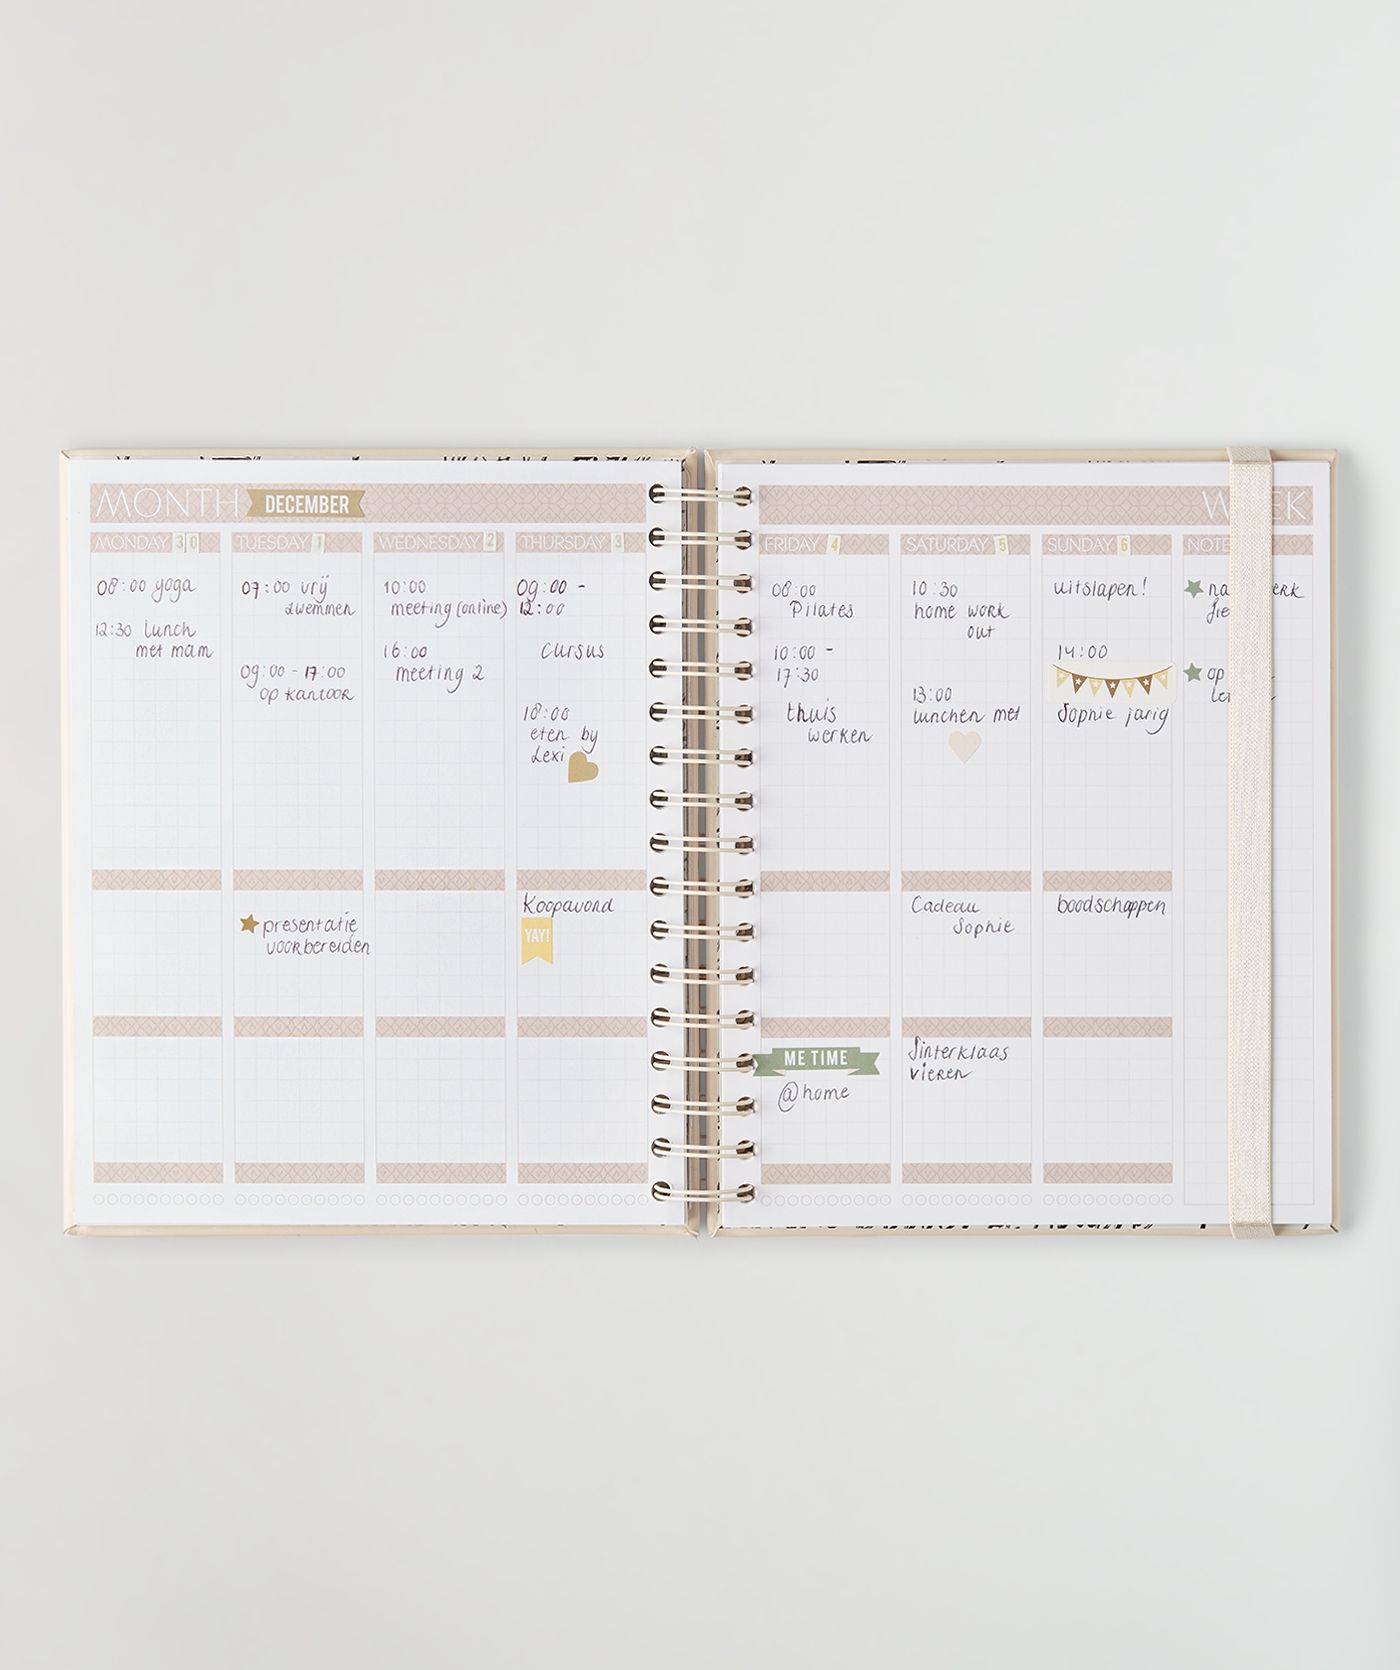 MONTH DECEMBER
MONDAY 30
08:00 yoga
12:30 lunch
met mam
TUESDAY 1
07:00 vrij
zwemmen
09:00 - 17:00
op kantoor
presentatie
voorbereiden
WEDNESDAY 2
10:00
meeting (online)
16:00
meeting 2
THURSDAY 3
09:00 -
12:00
cursus
18:00
eten by
Lexi
Koopavond
YAY!
FRIDAY 4
08:00
Pilates
10:00 -
17:30
thuis
werken
ME TIME
@home
SATURDAY 5
10:30
home work
out
13:00
lunchen met
Cadeau
Sophie
Sinterklaas
vieren
SUNDAY 6
uitslapen!
14:00
Sophie jarig
boodschappen
op